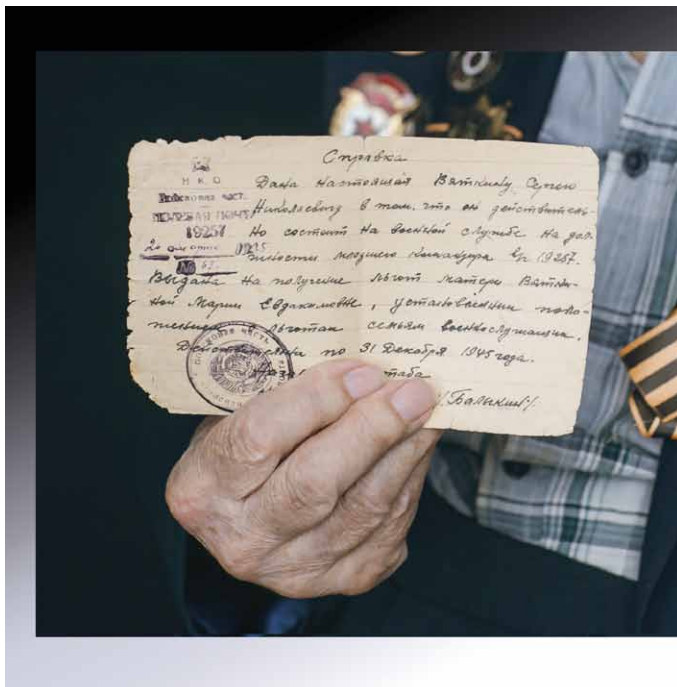 Справка
Н К О
Войсковая част.
ПОЛЕВАЯ ПОЧТА
19257
2 о апреля 1945
№ 63.
Дана настоящая Вяткину Сергею
Николаевичу в том, что он действитель-
но состоит на военной службе на дол-
жности младшего командира вч 19257.
Выдана на получение льгот матери Вятки-
ной Марии Евдакимовне, установленных поло-
жением о льготах семьям военнослужащим.
Действительна по 31 Декабря 1945 года.
штаба
/Балыкин/.
ПОЛЕВАЯ ЧАСТЬ